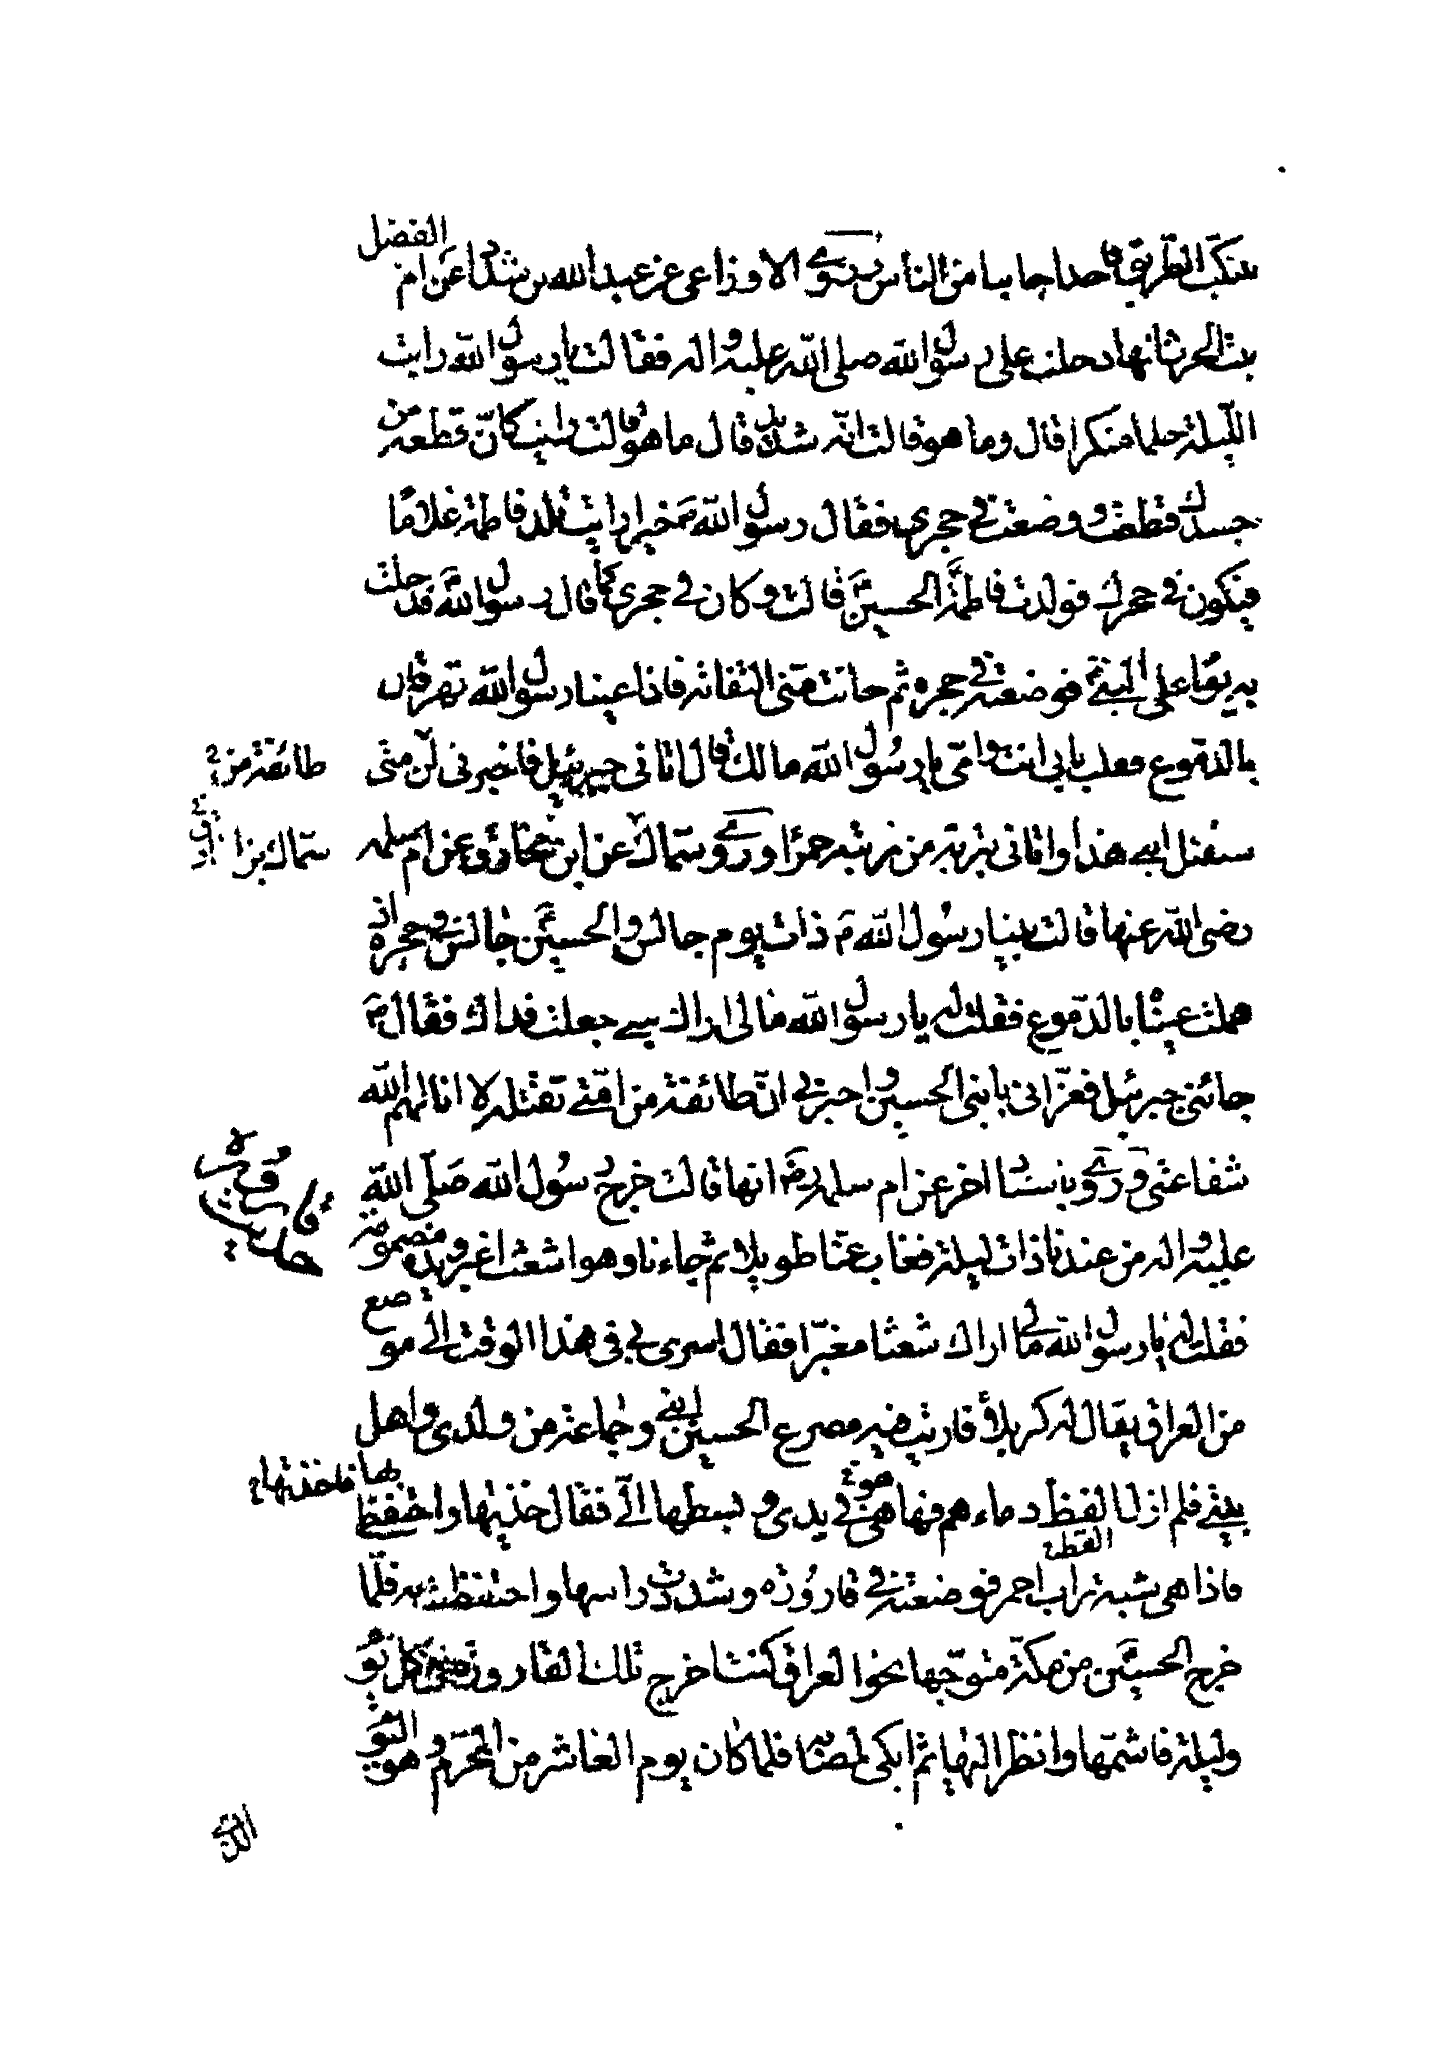 يتنكب الطريق قاصدا جانبا من الناس وروى الاوزاعى عن عبد الله بن شداد عن ام الفضل
بنت الحرث انها دخلت على رسول الله صلى الله عليه واله فقالت يا رسول الله رايت
الليلة حلما منكرا قال وما هو قالت انه شديد قال ما هو قالت رايت كانّ قطعه من
جسدك قطعت و وضعت فى حجرى فقال رسول الله ص خيرا رايت تلد فاطمة غلامًا
فيكون فى حجرك فولدت فاطمة الحسين ع قالت وكان فى حجرى كما قال رسول الله ص فدخلت
به يوما على النبى ص فوضعته فى حجره ثم حانت منى التفاته فاذا عينا رسول الله تهرقان
بالدموع فقلت بابى انت وامّى يا رسول الله مالك قال اتانى جبرئيل فاخبرنى انّ
طائفة من
ستقتل ابنى هذا واتانى بتربة من تربته حمرا وروى سماك عن ابن مخارق عن ام سلمه
سماك بن
رضى الله عنها قالت بينا رسول الله ص ذات يوم جالس والحسين ع جالس فى حجره اذ
هملت عيناه بالدموع فقلت له يا رسول الله مالى اراك تبكى جعلت فداك فقال ص
جائنى جبرئيل فعزّانى بابنى الحسين واخبرنى انّ طائفة من امّتى تقتله لا انالهم الله
شفاعتى وروى باسناد اخر عن ام سلمه رض انها قالت خرج رسول الله صَلّى الله
عليه واله من عندنا ذات ليلة فغاب عنّا طويلا ثم جاءنا وهو اشعث اغبر ويده مضمومة
فقلت له يا رسول الله مالى اراك شعثا مغبّرا فقال اسرى بى فى هذا الوقت الى موضع
من العراق يقال له كربلاء فاريت فيه مصرع الحسين ابنى وجماعة من ولدى واهل
بيتى فلم ازل القط دماءهم فها هى فى يدى و بسطها الىّ فقال خذيها واحتفظى بها
فاخذتها
فاذا هى شبه تراب احمر فوضعته فى قارورة وشددت راسها واحتفظت به فلمّا
خرج الحسين ع من مكّة متوجّها نحو العراق كنت اخرج تلك القارورة فى كل يوم
وليلة فاشمّها وانظر اليها ثم ابكى لمصابه فلما كان يوم العاشر من المحرّم وهو اليوم